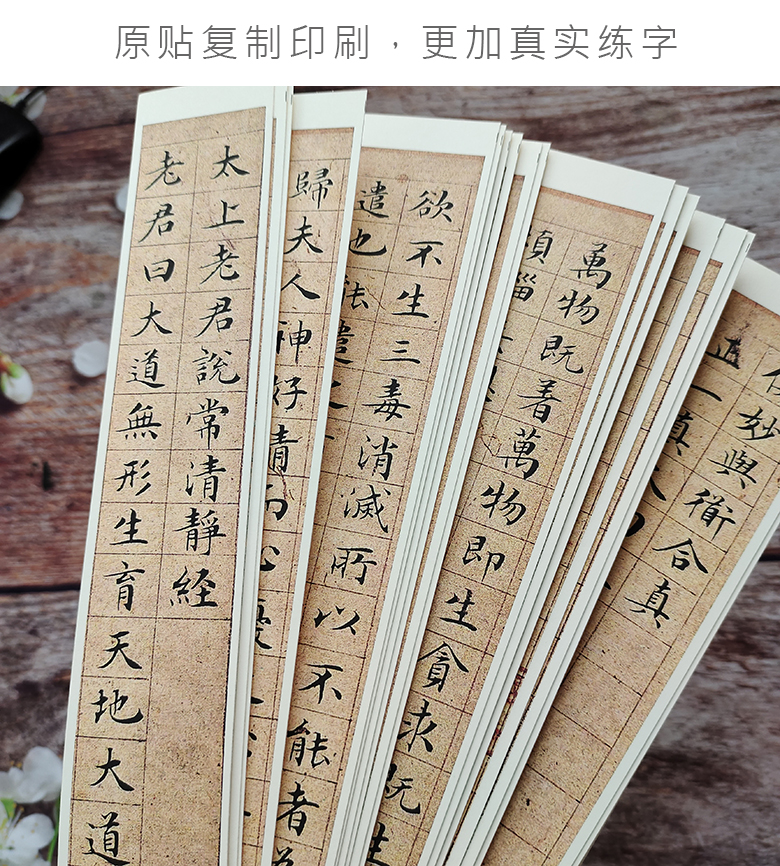 原贴复制印刷，更加真实练字
太上老君說常清靜経
老君曰大道無形生育天地大道
歸夫人神好清而心
欲不生三毒消滅所以不能者
遣也能遣之
萬物既着萬物即生貪求既生
妙與衜合真